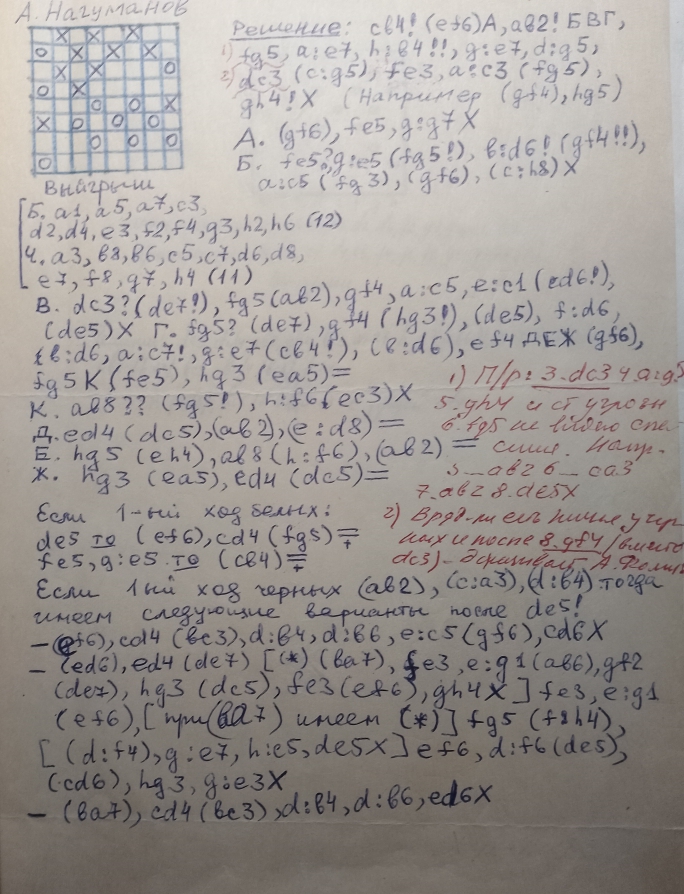 А. Нагуманов
Решение: cв4! (ef6)А, ав2! БВГ,
1) fg5, a:e7, h:в4!!, g:e7, d:g5,
2) dc3 (c:g5), fe3, a:c3 (fg5),
gh4! X (Например (gf4), hg5)
А. (gf6), fe5, g:g7 X
Б. fe5? g:e5 (fg5!), в:d6! (gf4!!),
a:c5 (fg3), (gf6), (c:h8) X
Выигрыш
Б. a1, a5, a7, c3,
d2, d4, e3, f2, f4, g3, h2, h6 (12)
Ч. a3, в8, в6, c5, c7, d6, d8,
e7, f8, g7, h4 (11)
В. dc3? (de7!), fg5 (ав2), gf4, a:c5, e:c1 (ed6!),
(de5) X Г. fg5? (de7), gf4 (hg3!), (de5), f:d6,
в:d6, a:c7!, g:e7 (cв4!), (в:d6), ef4 ДЕЖ (gf6),
fg5 К (fe5), hg3 (ea5) =
К. ав8?? (fg5!), h:f6 (ec3) X
Д. ed4 (dc5), (ав2), (e:d8) =
Е. hg5 (eh4), ав8 (h:f6), (ав2) =
Ж. hg3 (ea5), ed4 (dc5) =
1) П/р: 3. dc3 4 a:g5
5. gh4 и ст угрозы
6. fg5 не видно спа-
сения. Напр.
5 — ав2 6 — ca3
7. ав2 8. de5X
Если 1-ый ход белых:
de5 то (ef6), cd4 (fg5) =
fe5, g:e5 то (cв4) =
2) Вряд-ли есть ничья у чер
ных и после 8. gf4 (вместо
dc3) -
Если 1ый ход черных (ав2), (c:a3), (d:в4) тогда
имеем следующие варианты после de5!
— (ef6), cd4 (вc3), d:в4, d:в6, e:c5 (gf6), cd6X
— (ed6), ed4 (de7) [(*) (вa7), fe3, e:g1 (aв6), gf2
(de7), hg3 (dc5), fe3 (ef6), gh4X] fe3, e:g1
(ef6), [при (вa7) имеем (*)] fg5 (f:h4),
[(d:f4), g:e7, h:e5, de5X] ef6, d:f6 (de5),
(cd6), hg3, g:e3X
— (вa7), cd4 (вc3), d:в4, d:в6, ed6X